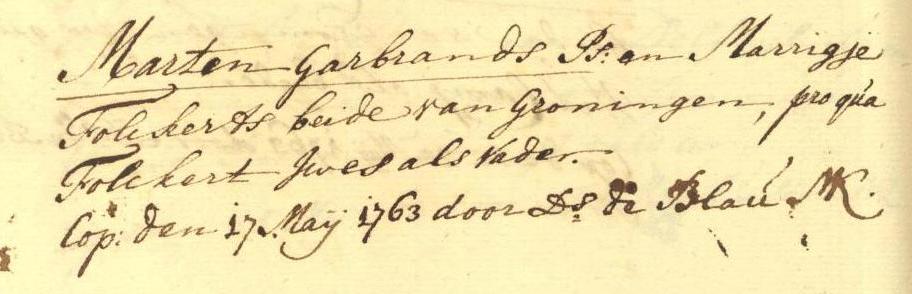 Marten Garbrands Ps: en Marrigje
Folckerts beide van Groningen, pro qua
Folckert Jwes als Vader.
Cop: den 17 Maÿ 1763 door Ds: de Blaú MK.